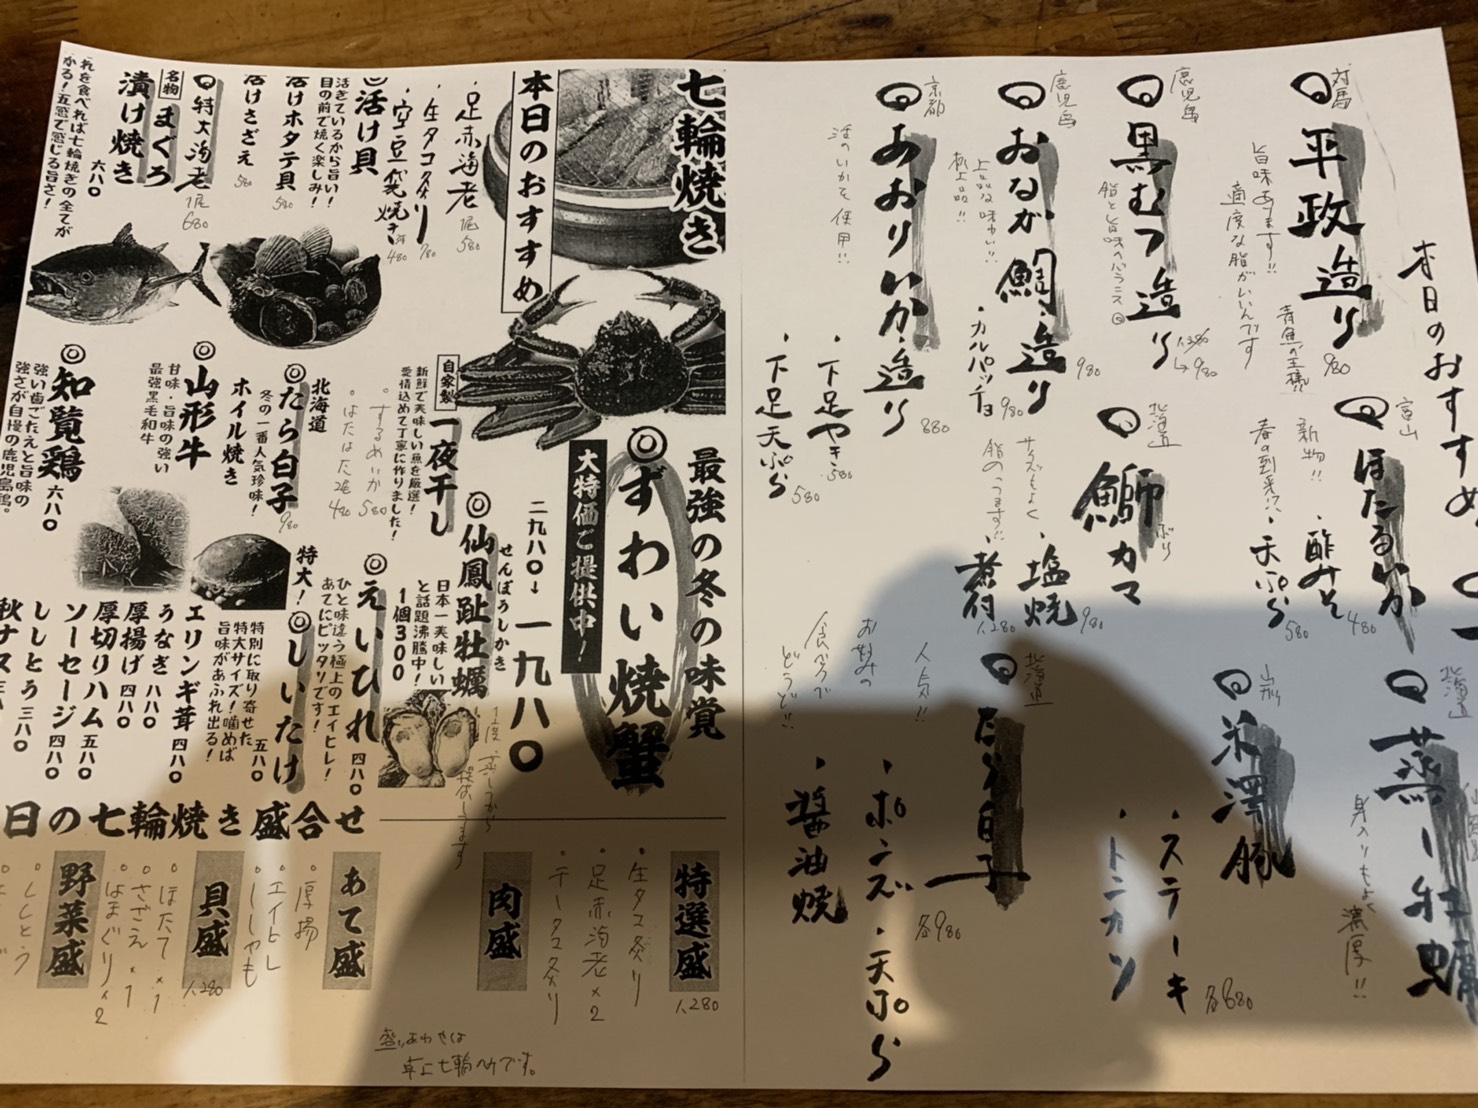 本日のおすすめ
対馬
平政造り
旨味あります!!
適度な脂がいいんです
青魚の王様!!
980
鹿児島
黒むつ造り
脂と旨味のバランス◎
1,380
→980
鹿児島
おるか鯛造り
上品な味わい!!
極上品!!
・カルパッチョ
980
980
京都
あおりいか造り
活のいかを使用!!
880
・下足やき
580
・下足天ぷら
580
富山
ほたるいか
新物!!
春の到来!?
・酢みそ
480
・天ぷら
580
北海道
鰤カマ
ぶり
サイズもよく
脂のりうます!!
・塩焼
980
・煮付
1,280
北海道
蒸し牡蠣
身入りもよく
濃厚!!
山形
米澤豚
・ステーキ
・トンカツ
各680
北海道
たら白子
人気!!
お好みの
食べ方で
どうぞ!!
各980
・ポンズ
・天ぷら
・醤油焼
七輪焼き
本日のおすすめ
・足赤海老
1尾
580
・生タコ炙り
780
・空豆袋焼き
480
◎活け貝
活きているから旨い!
目の前で焼く楽しみ!
活けホタテ貝
580
活けさざえ
580
◎特大海老
1尾
680
名物
まぐろ
漬け焼き
六八〇
これを食べれば七輪焼きの全てが
わかる!五感で感じる旨さ!
最強の冬の味覚
◎ずわい焼蟹
大特価ご提供中!
二九八〇→
一九八〇
自家製
一夜干し
新鮮で美味しい魚を厳選!
愛情込めて丁寧に作りました!
・するめいか
580
・はたはた2尾
480
せんぽうしかき
◎仙鳳趾牡蠣
日本一美味しい
と話題沸騰中!
1個300
1度蒸してから
提供します
北海道
◎たら白子
冬の一番人気珍味!
980
ホイル焼き
◎山形牛
甘味・旨味の強い
最強黒毛和牛
◎知覧鶏
六八〇
強い歯ごたえと旨味の
強さが自慢の鹿児島鶏。
◎えいひれ
四八〇
ひと味違う極上のエイヒレ!
あてにピッタリです!
特大!
◎しいたけ
五八〇
特別に取り寄せた
特大サイズ!噛めば
旨味があふれ出る!
エリンギ茸 四八〇
うなぎ 八八〇
厚揚げ 四八〇
厚切りハム 五八〇
ソーセージ 四八〇
ししとう 三八〇
秋ナス
日の七輪焼き盛合せ
特選盛
1,280
・生タコ炙り
・足赤海老×2
肉盛
あて盛
・厚揚
・エイヒレ
・ししゃも
貝盛
1,280
・ほたて×1
・さざえ×1
・はまぐり×2
野菜盛
・ししとう
盛りあわせは
卓上七輪のみです。